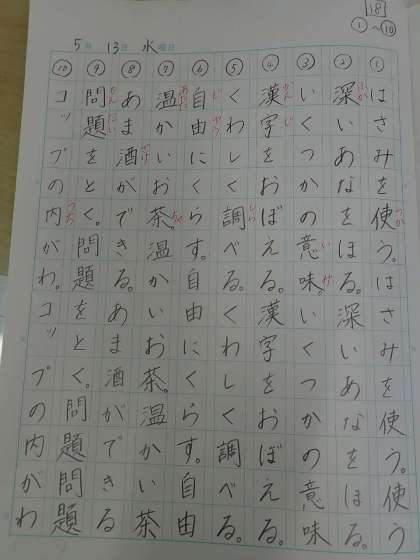 18
①～⑩
5月 13日 水曜日
① はさみを使う。はさみを使う。使う
② 深いあなをほる。深いあなをほる。
③ いくつかの意味。いくつかの意味。
④ 漢字をおぼえる。漢字をおぼえる。
⑤ くわしく調べる。くわしく調べる。
⑥ 自由にくらす。自由にくらす。自由
⑦ 温かいお茶。温かいお茶。温かい茶
⑧ あま酒ができる。あま酒ができる
⑨ 問題をとく。問題をとく。問題問題
⑩ コップの内がわ。コップの内がわ